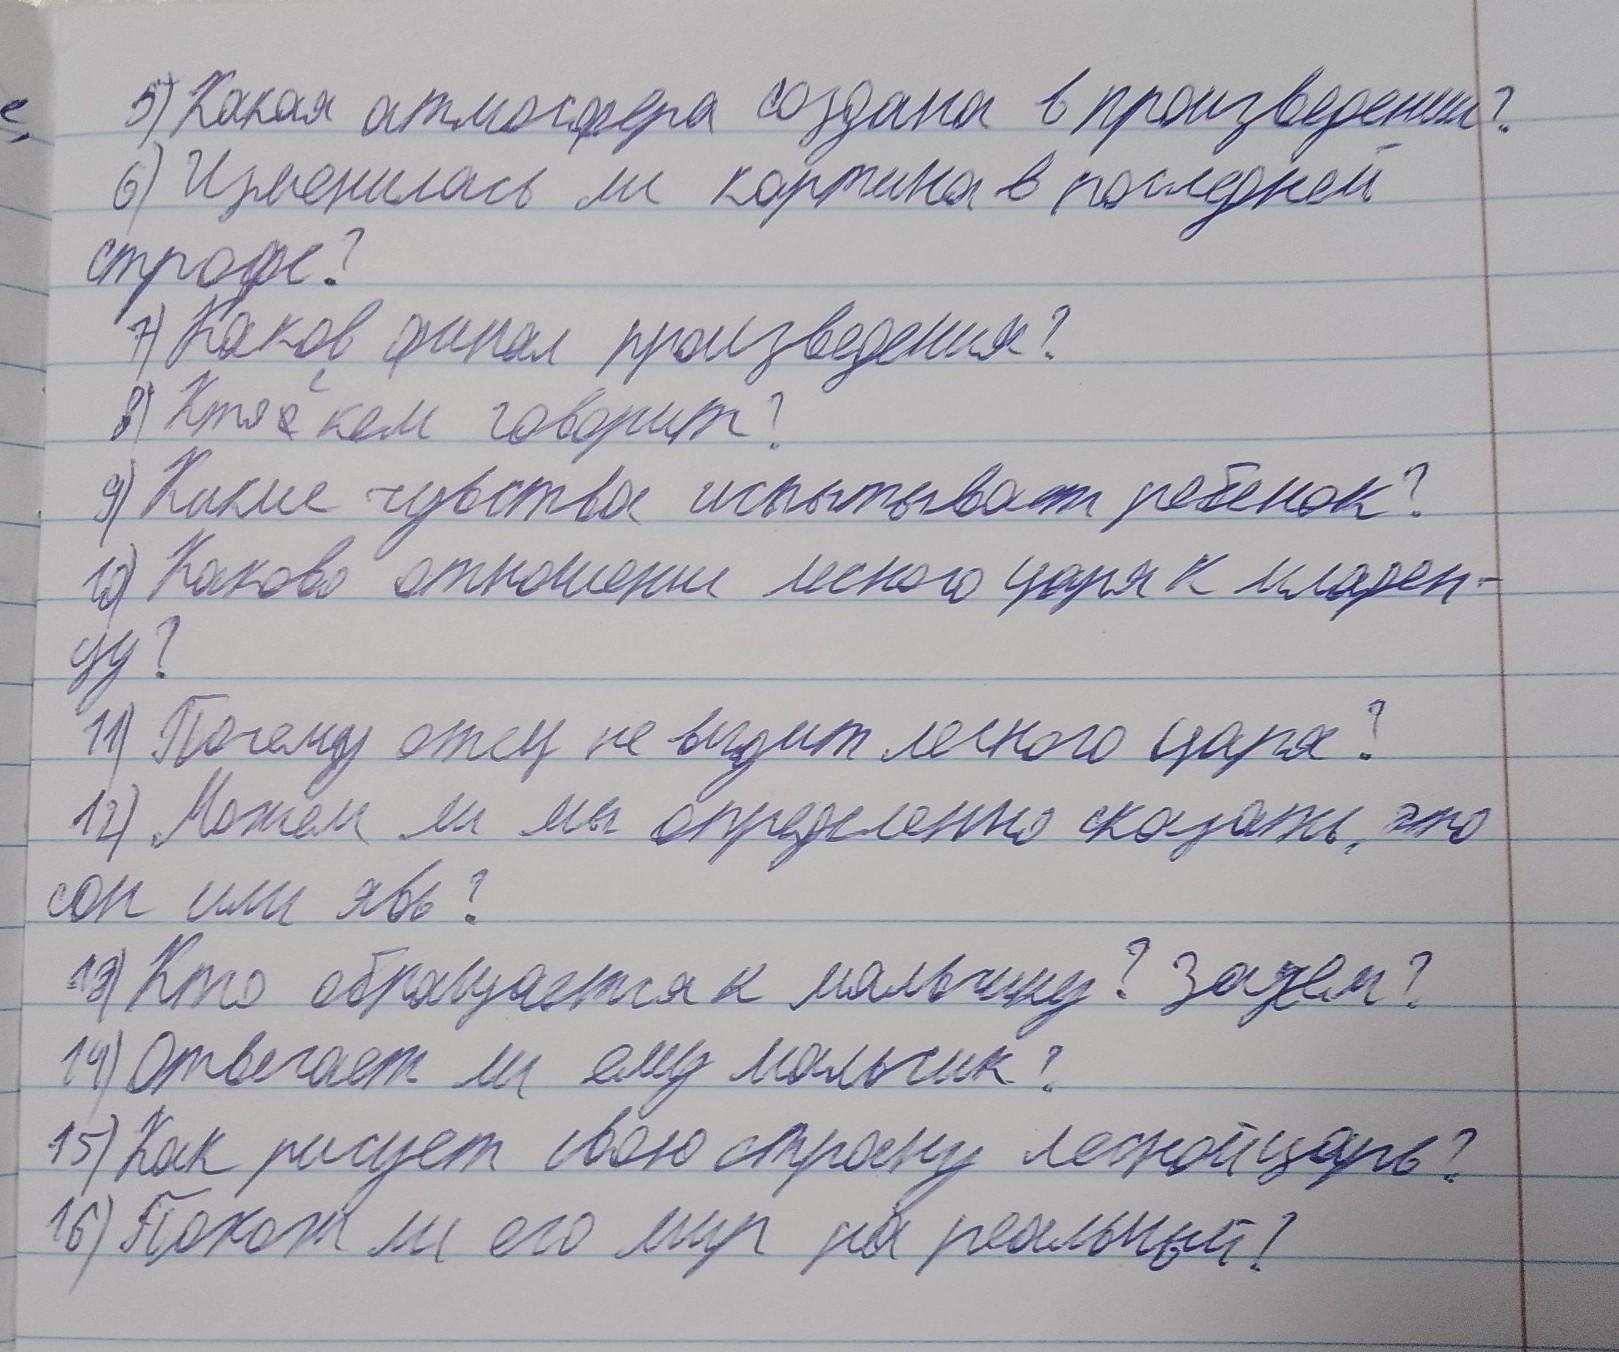 5) Какая атмосфера создана в произведении?
6) Изменилась ли картина в последней
строфе?
7) Каков финал произведения?
8) Кто с кем говорит?
9) Какие чувства испытывает ребенок?
10) Каково отношение лесного царя к младен-
цу?
11) Почему отец не видит лесного царя?
12) Можем ли мы определенно сказать, это
сон или явь?
13) Кто обращается к мальчику? Зачем?
14) Отвечает ли ему мальчик?
15) Как рисует свою страну лесной царь?
16) Похож ли его мир на реальный?